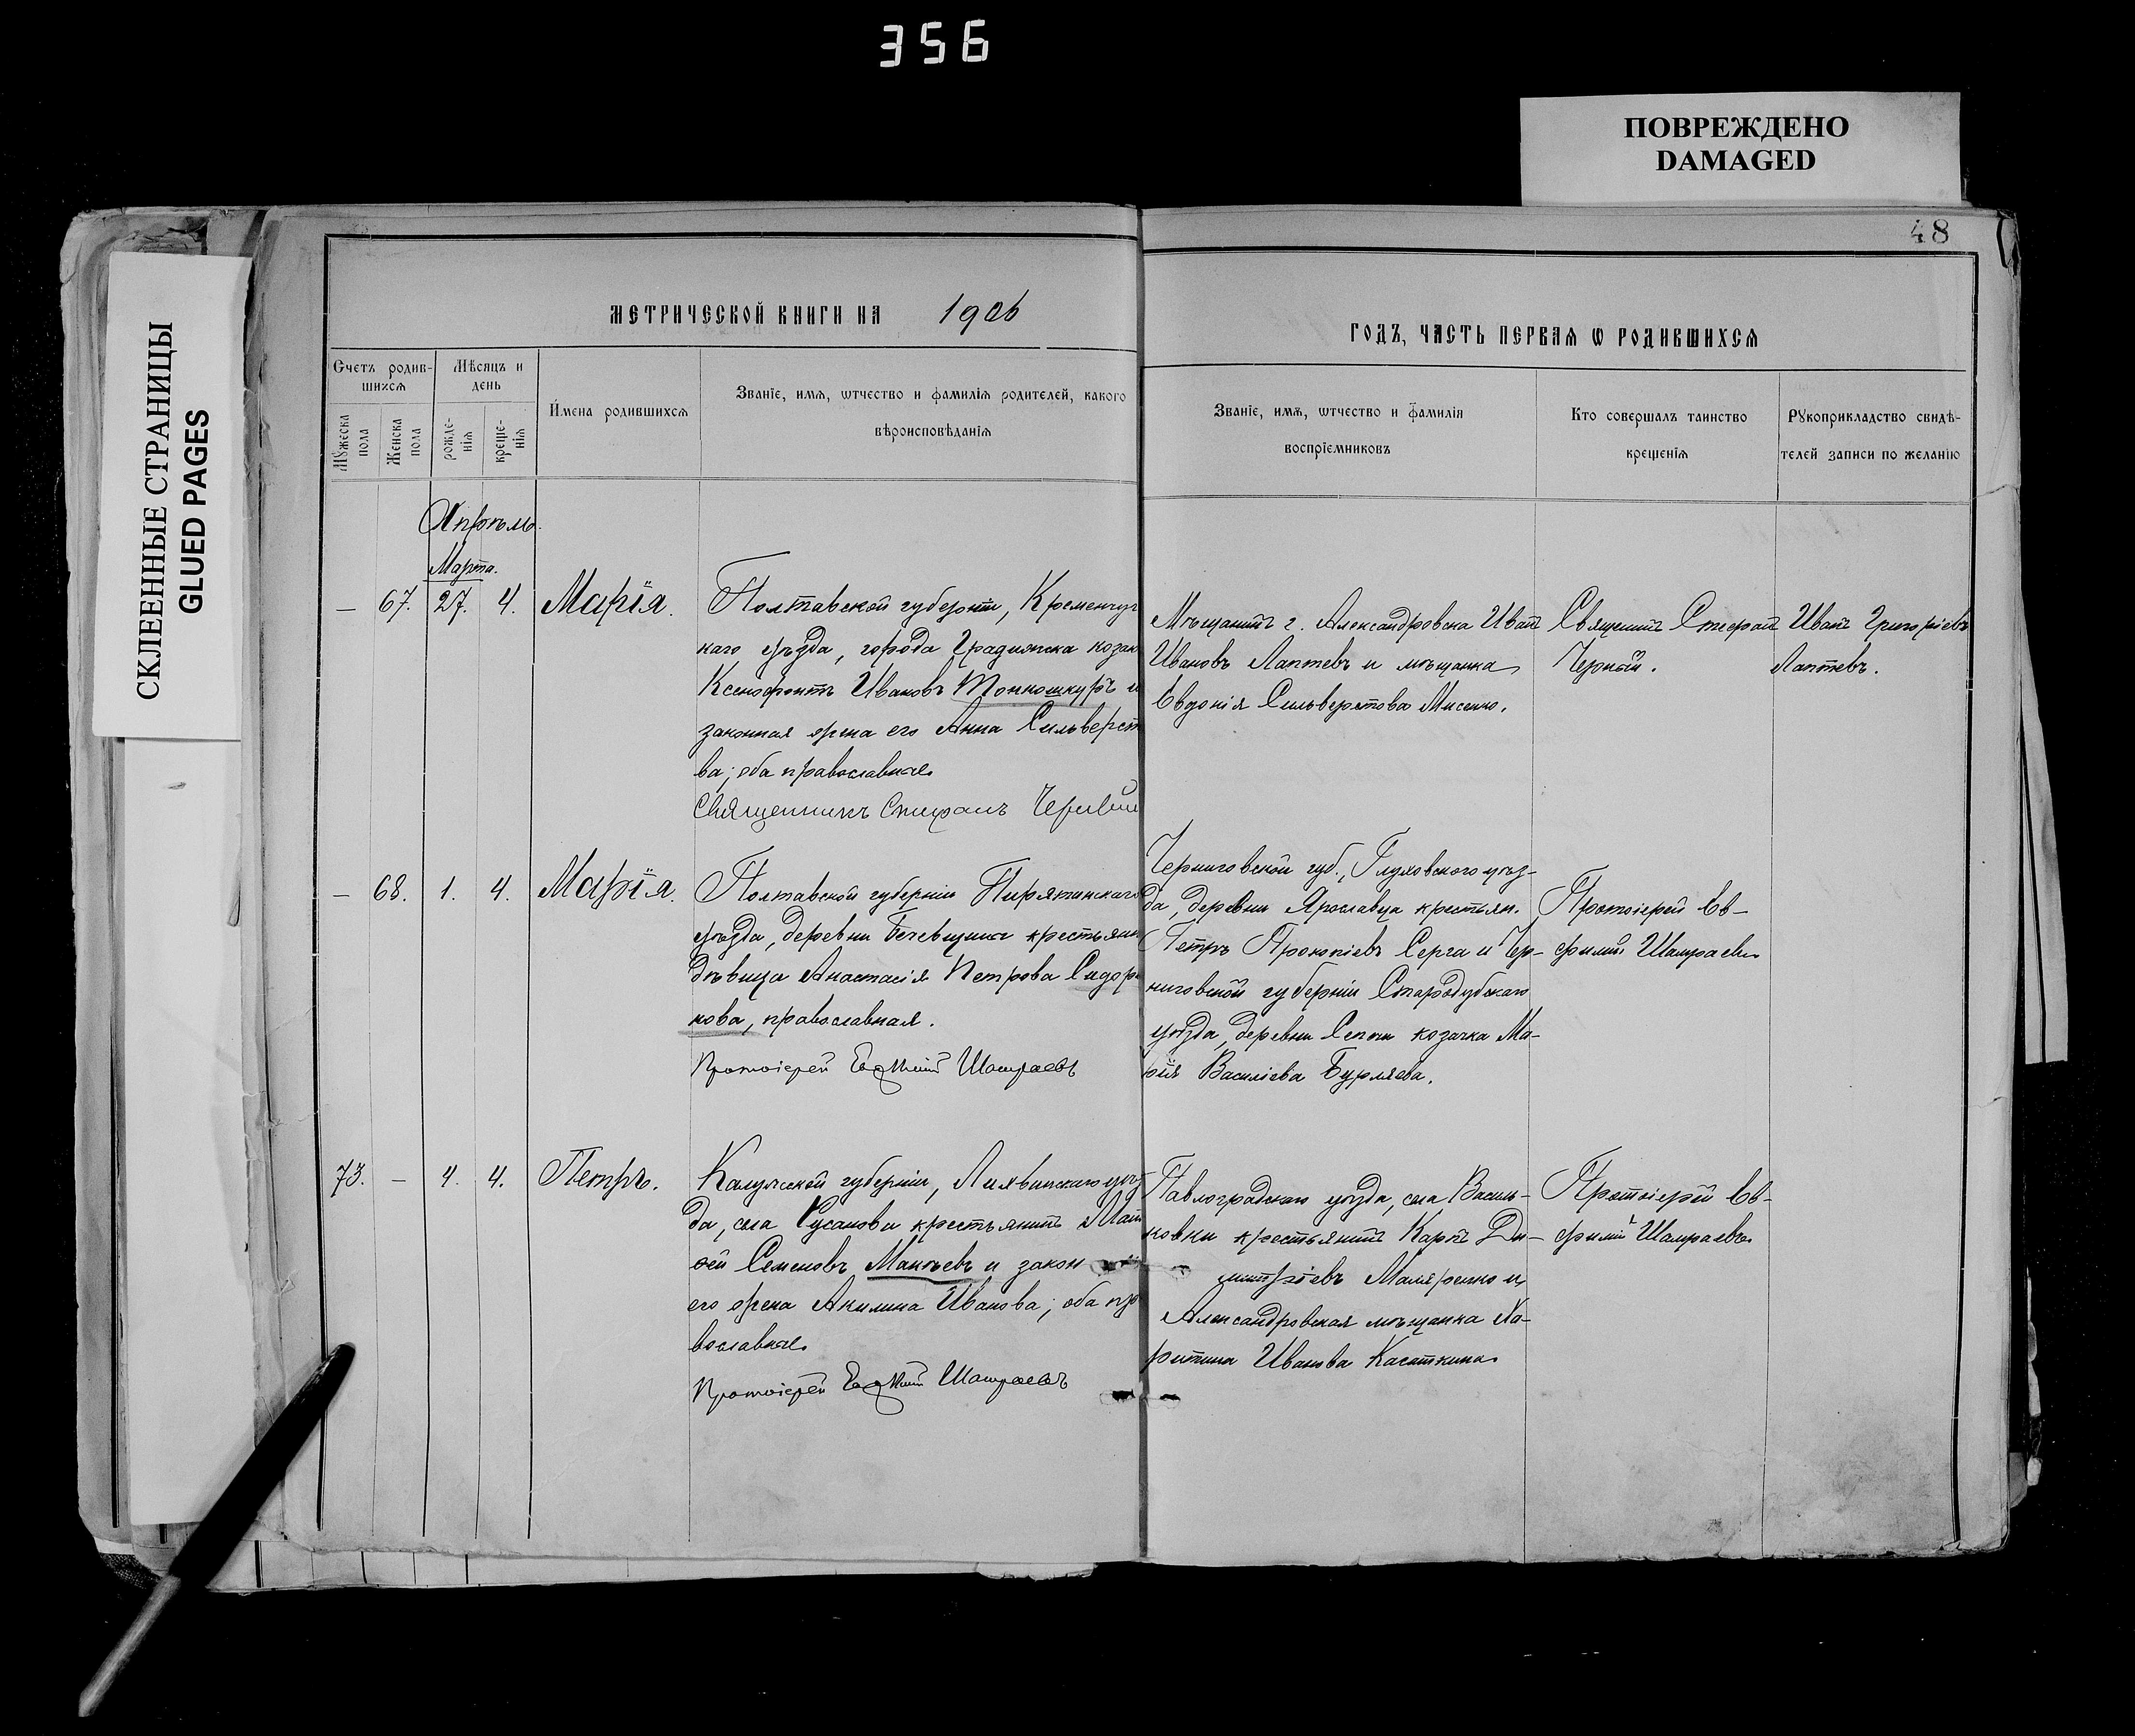 356
ПОВРЕЖДЕНО
DAMAGED
СКЛЕЕННЫЕ СТРАНИЦЫ
GLUED PAGES
48
МЕТРИЧЕСКОЙ КНИГИ НА 1906
ГОДЪ, ЧАСТЬ ПЕРВАЯ Ѡ РОДИВШИХСЯ
Счетъ родив-
шихся
Мужеска
пола
Женска
пола
Мѣсяцъ и
день
рожде-
нія
креще-
нія
Имена родившихся
Званіе, имя, ѡтчество и фамилія родителей, какого
вѣроисповѣданія
Званіе, имя, ѡтчество и фамилія
воспріемниковъ
Кто совершалъ таинство
крещенія
Рукоприкладство свидѣ-
телей записи по желанію
Апрѣль.
Марта.
— 67. 27. 4. Марія.
Полтавской губерніи, Кременчуг
каго уѣзда, города Градижска козак
Ксенофонтъ Ивановъ Тонкошкуръ и
законная жена его Анна Сильверст
ва; оба православные.
Священникъ Стефанъ
Мѣщанинъ г. Александровска Иванъ
Ивановъ Лаптевъ и мѣщанка
Евдокія Сильверстова Мисенко.
Священникъ Стефанъ
Иванъ Григоріевъ
Лаптевъ.
— 68. 1. 4. Марія.
Полтавской губерніи Пирятинскаго
уѣзда, деревни крестьян
дѣвица Анастасія Петрова Сидор
кова, православная.
Протоіерей Евфимій Шамраевъ
Черниговской губ., Глуховского уѣз-
да, деревни Ярославца крестьян.
Петръ Прокопіевъ Серга и Чер-
ниговской губерніи Стародубскаго
уѣзда, деревни козачка Ма-
рія Василіева Бурляева.
Протоіерей Ев-
фимій Шамраевъ
73. — 4. 4. Петръ.
Калужской губерніи, Лихвинскаго уѣз
да, села крестьянинъ Мат
ѳей Семеновъ Макѣевъ и закон
его жена Акилина Иванова; оба пра
вославные.
Протоіерей Евфимій Шамраевъ
Павлоградскаго уѣзда, села Василь-
ковки крестьянинъ Карпъ Ди-
митріевъ Маляренко и
Александровская мѣщанка Ха-
ритина Иванова Касаткина.
Протоіерей Ев-
фимій Шамраевъ